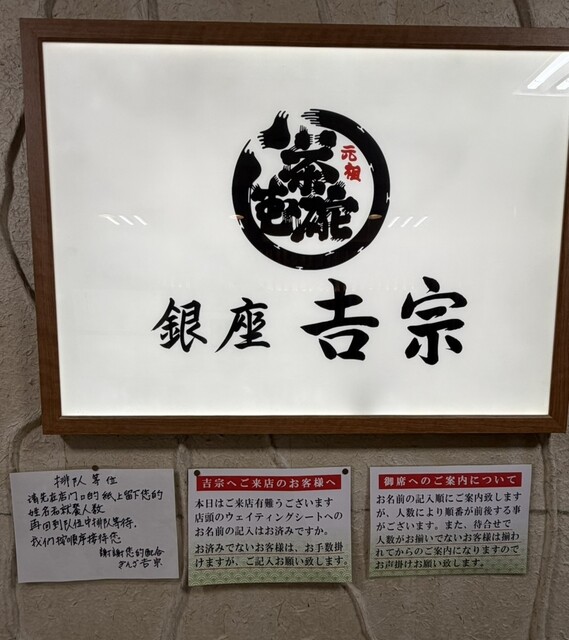 元祖
茶碗むし
銀座 吉宗
排队等位
请先在店门口的纸上留下您的
姓名和就餐人数
再回到队位中排队等待，
我们按顺序接待您
謝謝您的配合
ぎんざ吉宗
吉宗へご来店のお客様へ
本日はご来店有難うございます
店頭のウェイティングシートへの
お名前の記入はお済みですか。
お済みでないお客様は、お手数掛
けますが、ご記入お願い致します。
御席へのご案内について
お名前の記入順にご案内致します
が、人数により順番が前後する事
がございます。また、待合せで
人数がお揃いでないお客様は揃わ
れてからのご案内になりますので
お声掛けお願い致します。